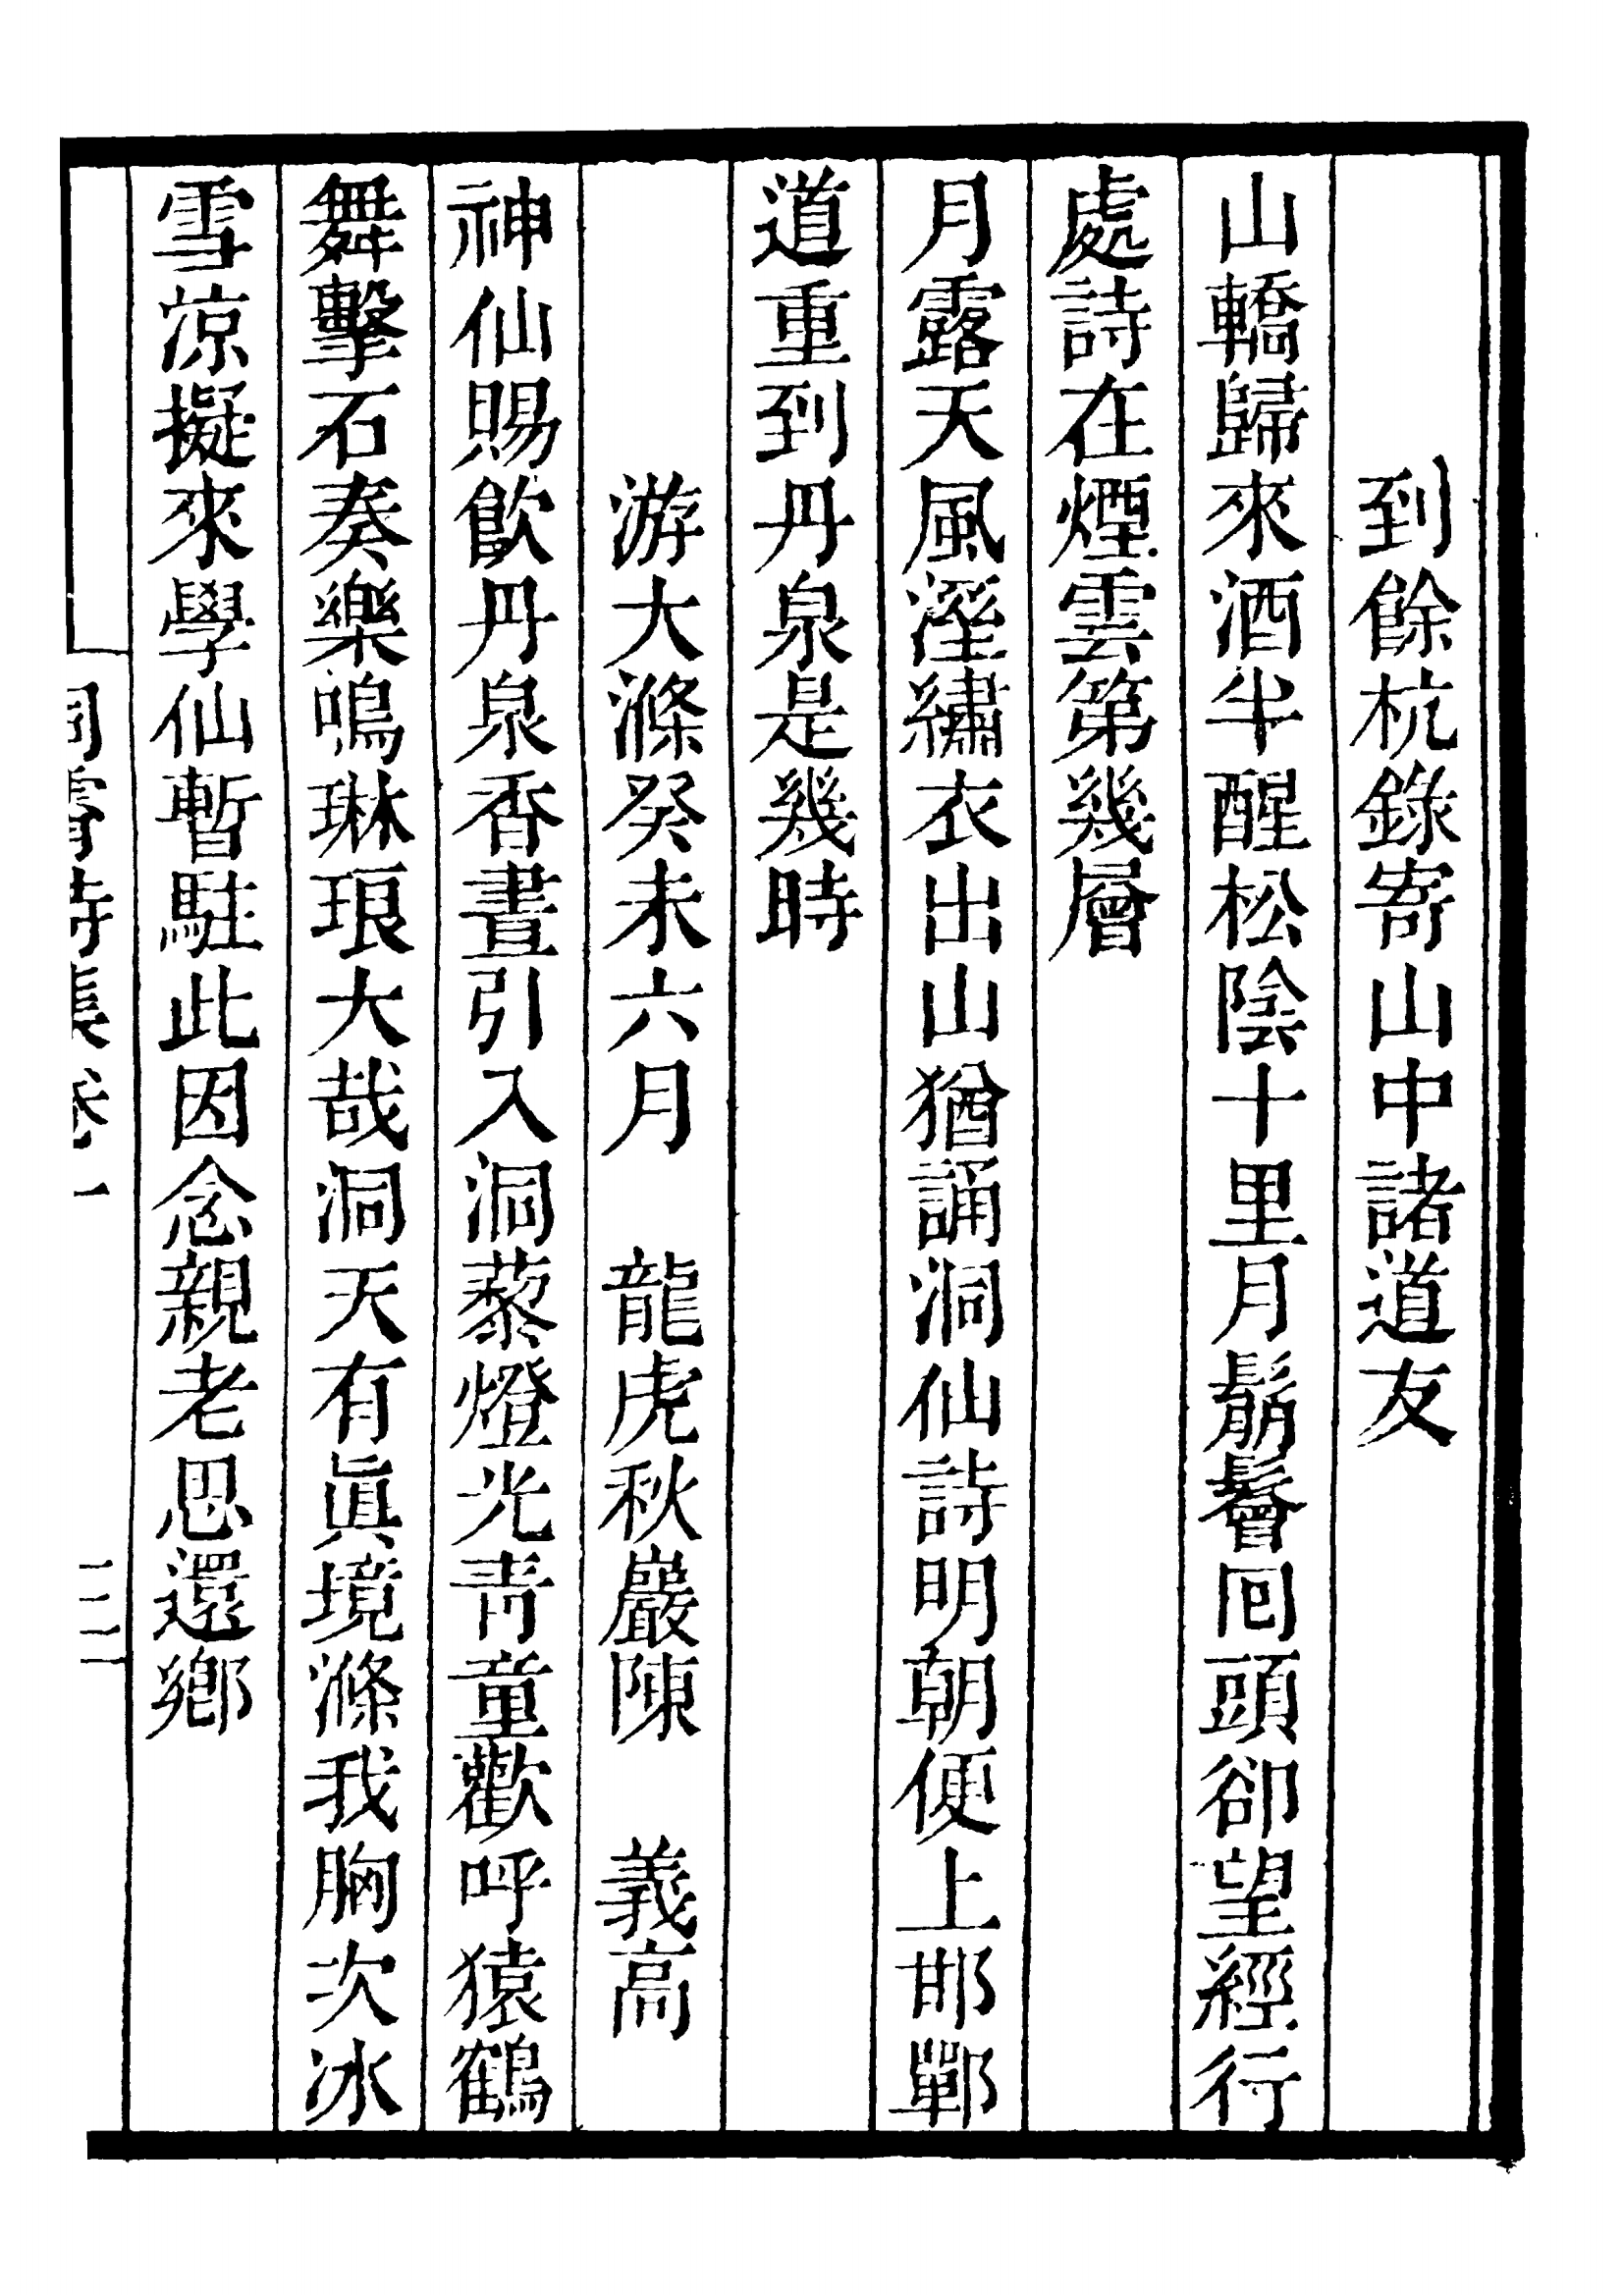 到餘杭錄寄山中諸道友
山轎歸來酒半醒松陰十里月鬅鬙囘頭卻望經行
處詩在煙雲第幾層
月露天風溼繡衣出山猶誦洞仙詩明朝便上邯鄲
道重到丹泉是幾時
游大滌癸未六月　龍虎秋巖陳　義高
神仙賜飲丹泉香晝引入洞藜燈光靑童歡呼猿鶴
舞擊石奏樂鳴琳琅大哉洞天有眞境滌我胸次冰
雪涼擬來學仙暫駐此因念親老思還鄉
洞霄詩集卷一